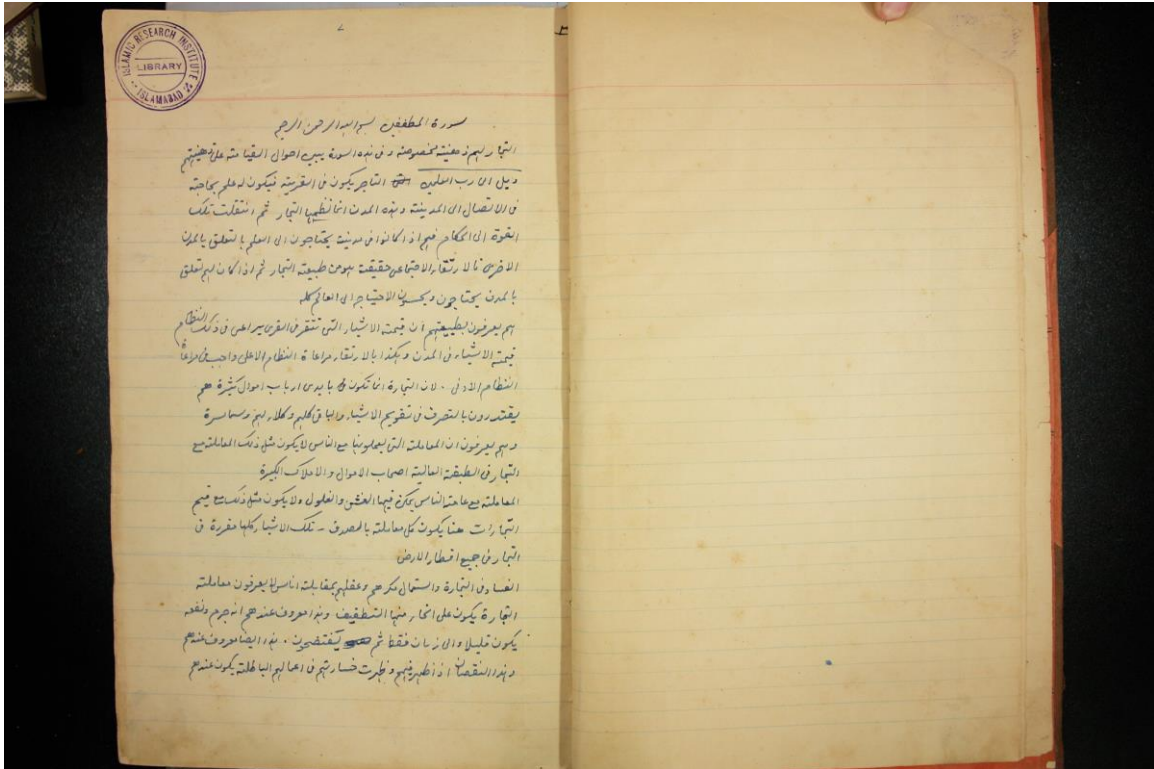 ISLAMIC RESEARCH INSTITUTE
LIBRARY
ISLAMABAD
٧
سورة المطففين بسم الله الرحمن الرحيم
التجار لهم ذهنية مخصوصة وفي هذه السورة يبين احوال القيامة على ذهنيتهم
ويل الى رب العلمين التاجر يكون في القرية فيكون له علم بحاجته
في الاتصال الى المدينة وهذه المدن انما نظمها التجار ثم انتقلت تلك
القوة الى الحكام فهم اذا كانوا في مدينة يحتاجون الى العلم بالتعلق بالمدن
الاخرى فالارتقاء الاجتماعي حقيقة هو من طبيعة التجار ثم اذا كان لهم تعلق
بالمدن يحتاجون ويحسون الاحتياج الى العالم كله
هم يعرفون بطبيعتهم ان قيمة الاشياء التي تتقرر في القرى يراعى في ذلك النظام
قيمة الاشياء في المدن وهكذا بالارتقاء مراعاة النظام الاعلى واجب في مراعاة
النظام الادنى . لان التجارة انما تكون بايدى ارباب اموال كثيرة هم
يقتدرون بالتصرف في تقويم الاشياء والباقى كلهم وكلاء لهم وسماسرة
وهم يعرفون ان المعاملة التي يعملونها مع الناس لا يكون مثل ذلك المعاملة مع
التجار في الطبقة العالية اصحاب الاموال والاملاك الكبيرة
المعاملة مع عامة الناس يمكن فيها الغش والغلول ولا يكون مثل ذلك مع قيم
التجارات هنا يكون كل معاملة بالصدق - تلك الاشياء كلها مقررة في
التجار في جميع اقطار الارض
الفساد في التجارة واستعمال مكرهم وعقلهم بمقابلة اناس لا يعرفون معاملة
التجارة يكون على انحاء منها التطفيف وهذا معروف عندهم انه جرم ونفعه
يكون قليلا والى زمان فقط ثم يفتضحون . هذا ايضا معروف عندهم
وهذا النقصان اذا ظهر فيهم وظهرت خسارتهم في اعمالهم الباطلة يكون عندهم